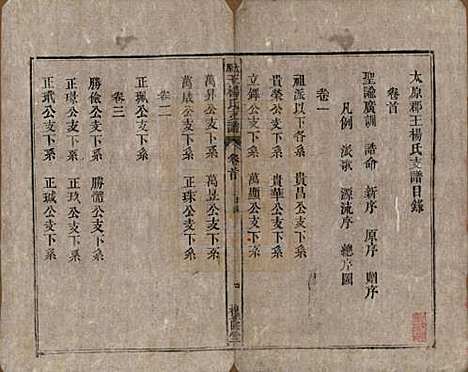 太原郡王楊氏支譜目錄
卷首
聖諭廣訓 誥命 新序 原序 贈序
凡例 派歌 源流序 總序圖
卷一
祖派以下各系 貴昌公支下系
貴榮公支下系 貴華公支下系
立鐸公支下系 萬鍾公支下系
王楊氏支譜 卷首 目錄
萬昇公支下系 萬昱公支下系
萬成公支下系 正珠公支下系
卷二
正珮公支下系
勝儉公支下系 勝體公支下系
正環公支下系 正玖公支下系
卷三
正玳公支下系 正珹公支下系